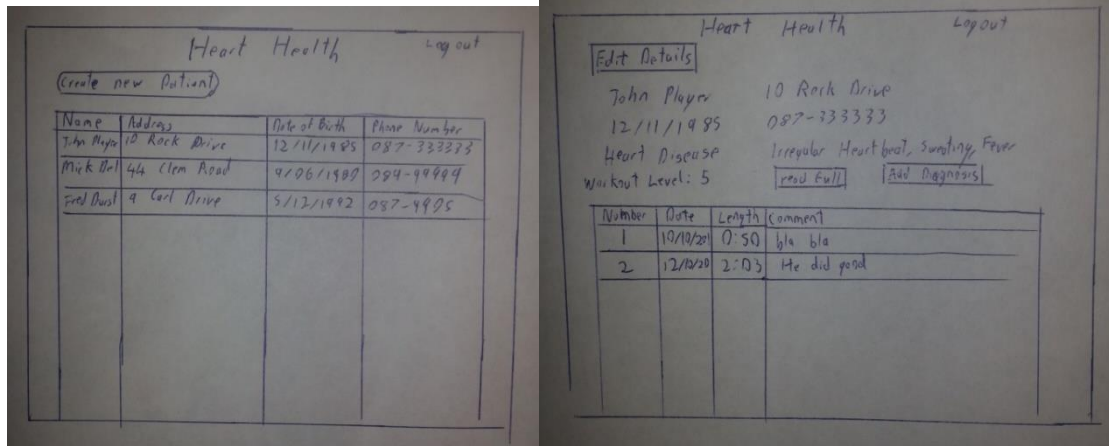 Heart Health Log out
Create new Patient
Name Address Date of Birth Phone Number
John Player 10 Rock Drive 12/11/1985 087-333333
Mick Del 44 Clem Road 9/06/1980 089-99999
Fred Durst 9 Carl Drive 5/12/1992 087-9995
Heart Health Logout
Edit Details
John Player 10 Rock Drive
12/11/1985 087-333333
Heart Disease Irregular Heartbeat, Sweating, Fever
Workout Level: 5 read Full Add Diagnosis
Number Date Length Comment
1 10/10/20 0:50 bla bla
2 12/10/20 2:03 He did good